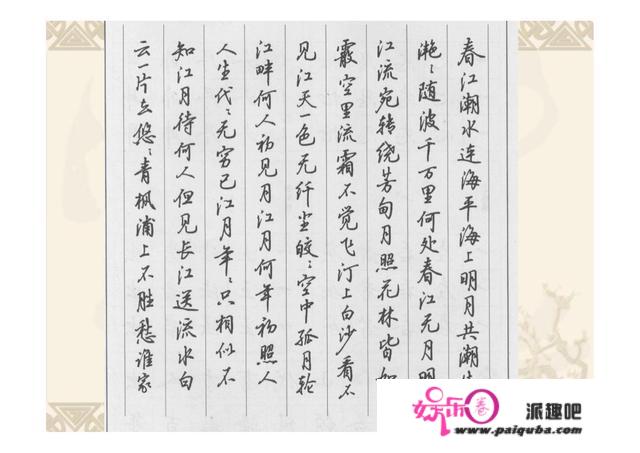 春江潮水连海平海上明月共潮生
滟々随波千万里何处春江无月明
江流宛转绕芳甸月照花林皆如
霰空里流霜不觉飞汀上白沙看不
见江天一色无纤尘皎々空中孤月轮
江畔何人初见月江月何年初照人
人生代々无穷已江月年々只相似不
知江月待何人但见长江送流水白
云一片去悠々青枫浦上不胜愁谁家
娱乐圈 派趣吧
www.paiquba.com